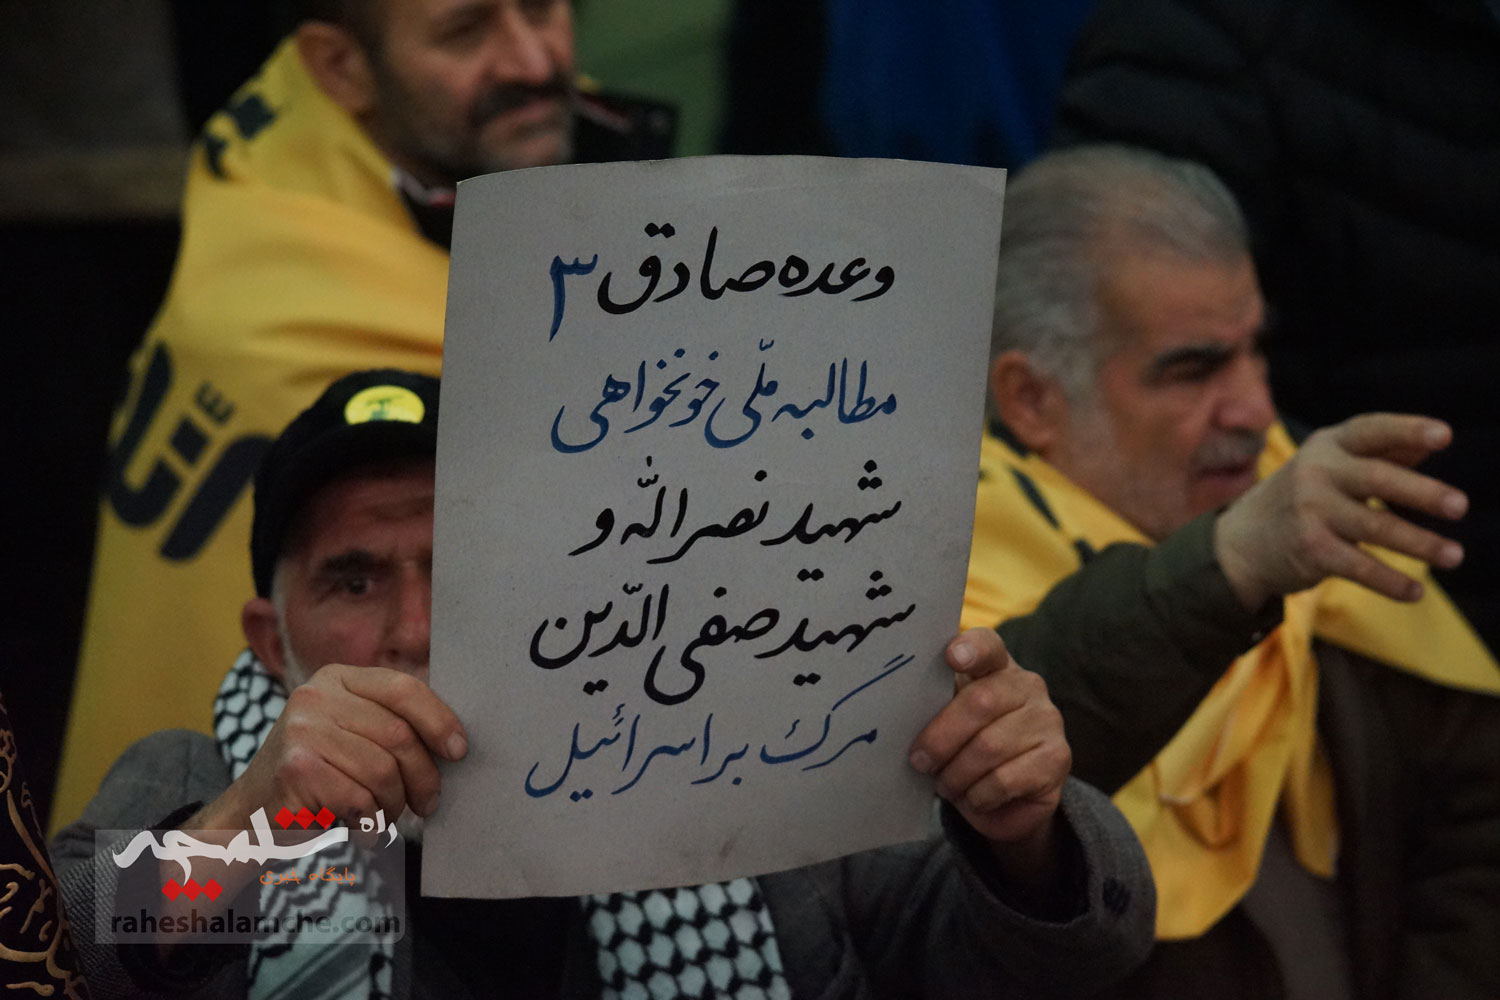 وعده صادق ۳
مطالبه ملّی خونخواهی
شهید نصراللّه و
شهید صفی الدّین
مرگ بر اسرائیل
راه شلمچه
پایگاه خبری
raheshalamche.com